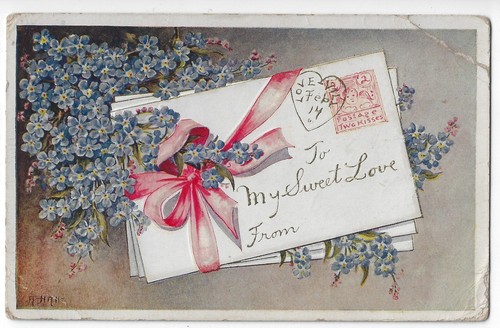 LOVE
Feb
14
Postage
Two Kisses
To
My Sweet Love
From